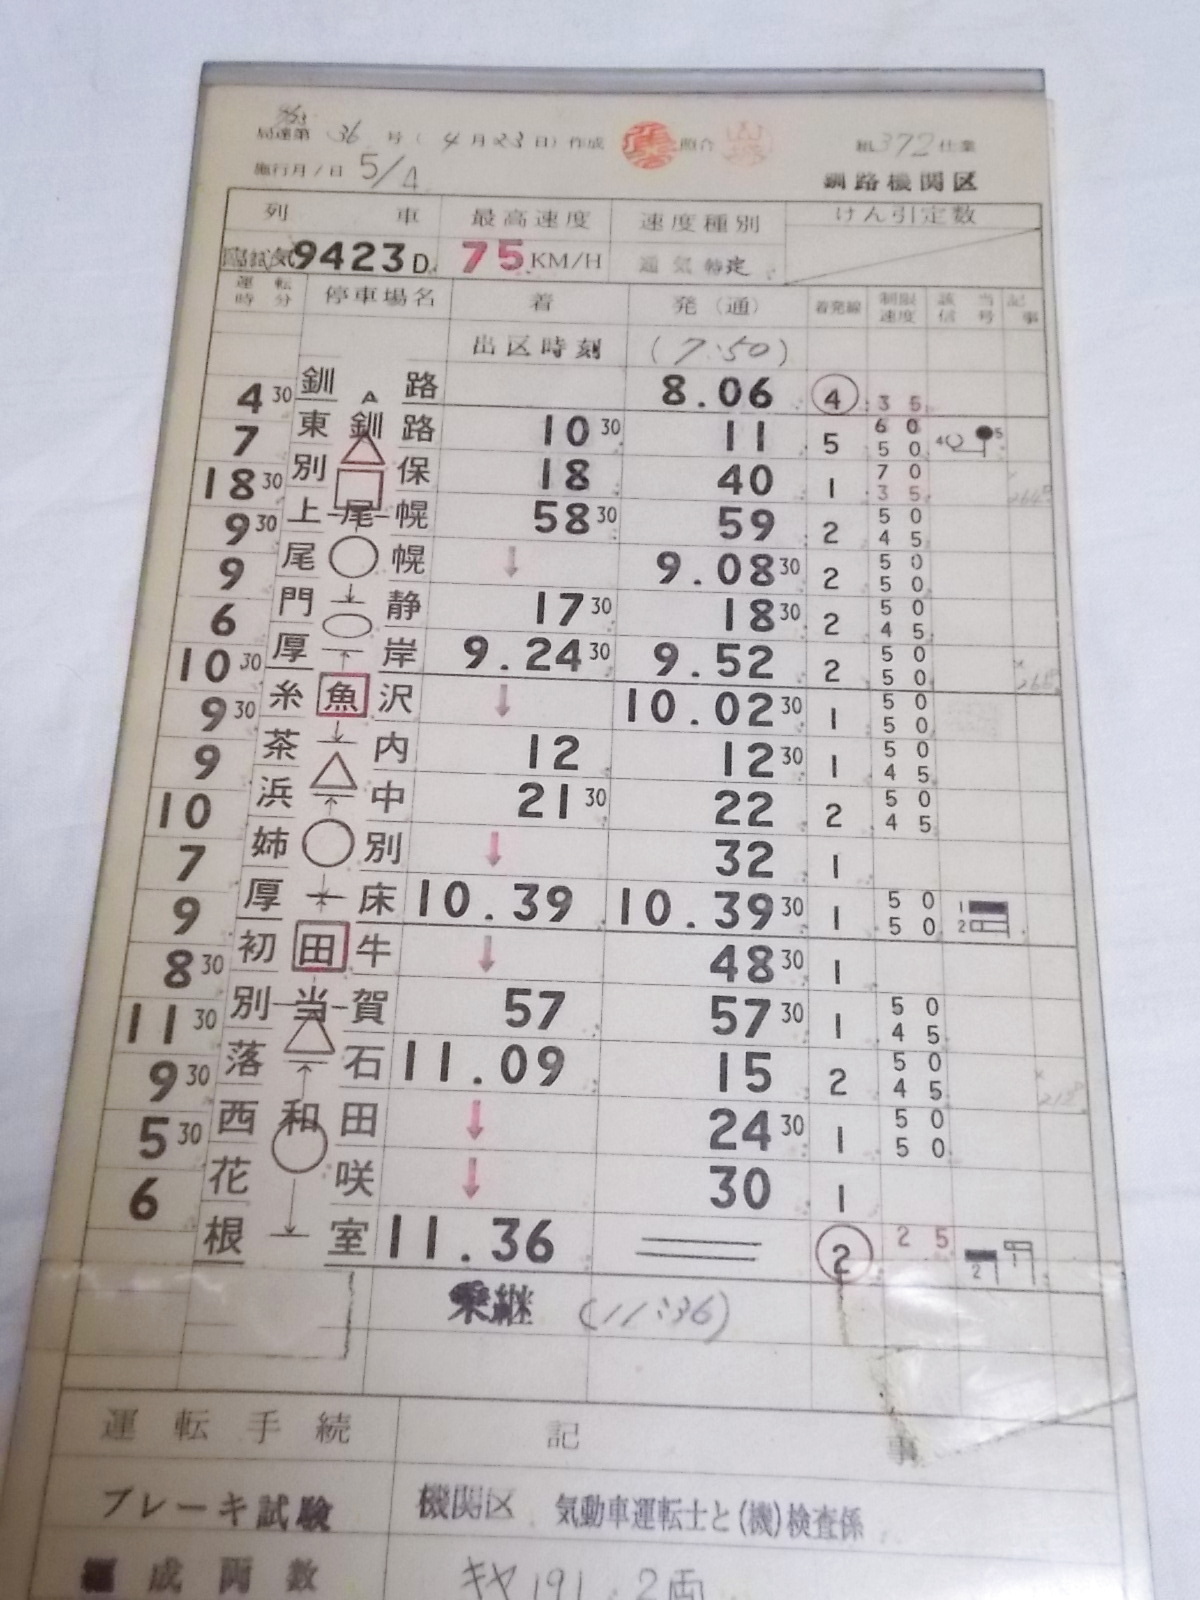 局達第 36 号 ( 4 月 23 日) 作成 照介 組 372 仕業
施行月/日 5/4 釧路機関区
列 車 最高速度 速度種別 けん引定数
9423D. 75 KM/H 通気特定
運転時分 停車場名 着 発(通) 着発線 制限速度 該当信号 記事
出区時刻 (7:50)
4 30 釧路 8.06 4 35
7 東釧路 10 30 11 5 60 50 4 5
18 30 別保 18 40 1 70 35
9 30 上尾幌 58 30 59 2 50 45
9 尾幌 ↓ 9.08 30 2 50 50
6 門静 17 30 18 30 2 50 45
10 30 厚岸 9.24 30 9.52 2 50 50
9 30 糸魚沢 ↓ 10.02 30 1 50 50
9 茶内 12 12 30 1 50 45
10 浜中 21 30 22 2 50 45
7 姉別 ↓ 32 1
9 厚床 10.39 10.39 30 1 50 50 1 2
8 30 初田牛 ↓ 48 30 1
11 30 別当賀 57 57 30 1 50 45
9 30 落石 11.09 15 2 50 45
5 30 西和田 ↓ 24 30 1 50 50
6 花咲 ↓ 30 1
根室 11.36 2 25 2 1
乗継 (11:36)
運転手続 記事
ブレーキ試験 機関区 気動車運転士と(機)検査係
編成両数 キヤ191. 2両